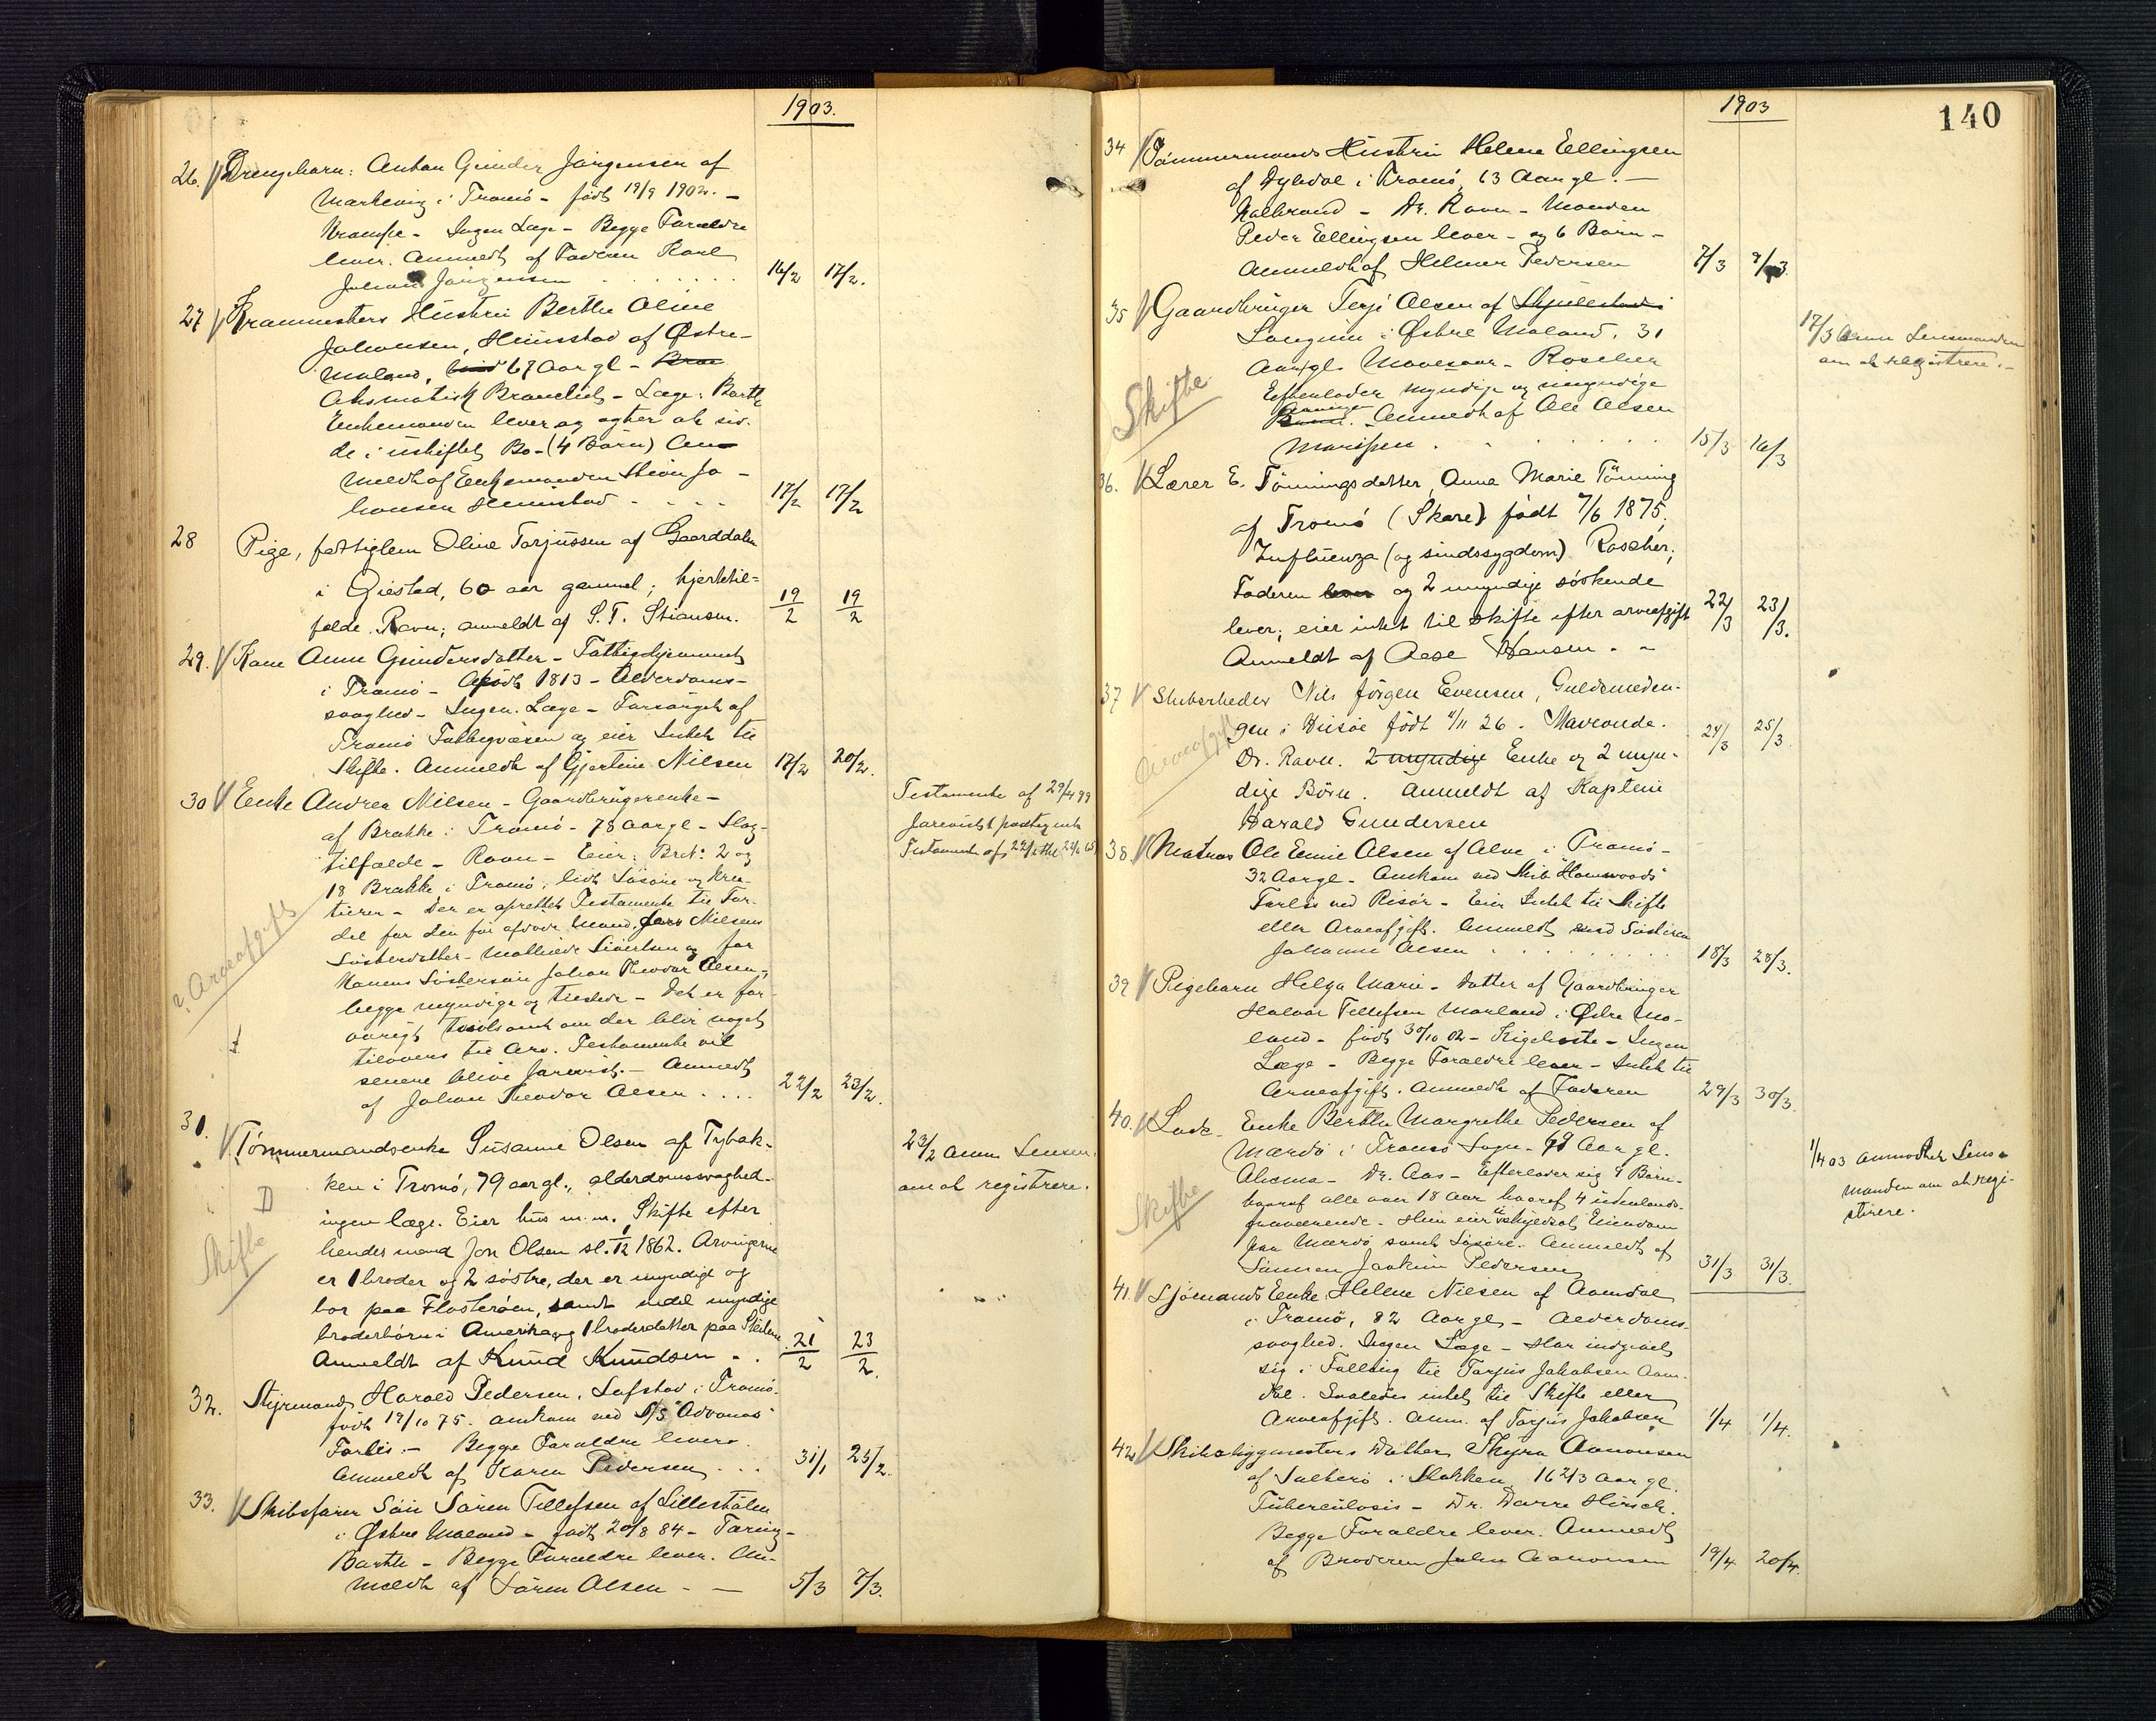 1903.
26. Drengebarn: Anton Gunder Jørgensen af
Markevig i Tromö - født 19/9 1902. -
Krampe - Ingen Læge - Begge Forældre
lever. Anmeldt af Faderen Karl
Johan Jørgensen 16/2 17/2.
27 Hustru Berthe Oline
Johansen, af Østre-
Moland, 67 Aar gl -
Læge: Barth
Enkemanden lever og agter at sid-
de i uskiftet Bo - (4 Børn) An-
meldt af Enkemanden Jo-
hansen 17/2 17/2
28 Pige, fattiglem Oline Torjussen af Gaarddalen
i Øiestad, 60 aar gammel; hjertetil=
fælde. Ravn; anmeldt af S. T. Stiansen. 19/2 19/2
29. Kone Anne Gundersdatter - Fattighjemmet
i Tromö - født 1813 - Alderdoms-
svaghed - Ingen Læge - Forsørget af
Tromö Fattigvæsen og eier Intet til
Skifte. Anmeldt af Gjertine Nilsen 17/2 20/2.
30 Enke Andrea Nilsen - Gaardbrugerenke -
af Brække i Tromö - 78 Aar gl - Slag-
tilfælde - Ravn - Eier: Brk: 2 og
18 Brække i Tromö, lidt Løsøre og Krea-
turer - Der er oprettet Testamente til For-
del for den før afdøde Mand Nilsens
Søsterdatter og for
Konens Søstersøn Johan Theodor Olsen,
begge myndige og tilstede - Det er for-
øvrigt tvivlsomt om der blir noget
tilovers til Arv. Testamente vil
senere blive - Anmeldt
af Johan Theodor Olsen 22/2 23/2.
Testamente af
Testamente af
? Arveafgift
31. Tömmermandsenke Susanne Olsen af Tybak-
ken i Tromö, 79 aar gl., alderdomssvaghed.
ingen læge. Eier hus m.m. Skifte efter
hendes mand Jon Olsen sl. 1862. Arvingerne
er 1 broder og 2 søstre, der er myndige og
bor paa Flosterøen, samt endel myndige
broderbørn i Amerika og 1 broderdatter paa
Anmeldt af Knud Knudsen - 21/2 23/2.
23/2 anm. Lensm.
om at registrere.
D
Skifte
32. Styrmand Harald Pedersen, i Tromö.
født 19/10 75. omkom ved S/S "Advance"
Forlis. - Begge Forældre lever.
Anmeldt af Karen Pedersen 31/1 25/2.
33. Skibsfører Søn Sören Tellefsen af
i Østre Moland - født 20/8 84 - Tæring -
Barth - Begge Forældre lever. An-
meldt af Sören Olsen - 5/3 7/3.
1903
140
34 Tömmermands Hustru Helene Ellingsen
af i Tromö, 63 Aar gl. -
Koldbrand - Dr. Ravn - Manden
Peder Ellingsen lever - og 6 Børn -
Anmeldt af Helmer Pedersen 7/3 9/3
35 Gaardbruger Terje Olsen af
i Østre Moland, 31
Aar gl. - Roscher
Efterlader myndige og umyndige
Arvinger. Anmeldt af Ole Olsen
15/3 16/3
17/3 Anm. Lensmanden
om at registrere. -
Skifte
36. Lærer E. Tönningsdatter, Anna Marie Tönning
af Tromö (Skare) født 7/6 1875,
Influenza (og sindssygdom) Roscher;
Faderen lever og 2 umyndige søskende
lever; eier intet til skifte eller arveafgift
Anmeldt af Aase Hansen. - 22/3 23/3.
37 Nils Jörgen Evensen, Guldsmeden-
gen i Hisøe født 11/11 26. Maveonde.
Dr. Ravn. 2 myndige Enke og 2 myn-
dige Børn. Anmeldt af Kaptein
Harald Gundersen 24/3 25/3.
Arveafgift
38. Matros Ole Emil Olsen af Alve i Tromö -
32 Aar gl - Omkom ved Skib "Homewoods"
Forlis ved Risør - Eier Intet til Skifte
eller Arveafgift. Anmeldt ved Søsteren
Johanne Olsen 18/3 28/3.
39 Pigebarn Helga Marie - Datter af Gaardbruger
Halvor Tellefsen Morland i Østre Mo-
land - født 30/10 02 - Kighoste - Ingen
Læge - Begge Forældre lever - Intet til
Arveafgift. Anmeldt af Faderen 29/3 30/3.
40. Lods. Enke Berthe Margrethe Pedersen af
Mærdö i Tromö Sogn. 69 Aar gl.
Dr. Aas - Efterlader sig 9 Børn -
hvoraf alle over 18 Aar hvoraf 4 udenlands-
fraværende - Hun eier uskyldsat Eiendom
paa Mærdö samt Løsøre. Anmeldt af
Sønnen Joakim Pedersen 31/3 31/3.
1/4 03 anmodet Lens-
manden om at regi-
strere.
Skifte
41. Sjömands Enke Helene Nilsen af Aamdal
i Tromö, 82 Aar gl - Alderdoms-
svaghed. Ingen Læge - Har indgivet
sig i Følling til Torjus Jakobsen Aam-
dal. Saaledes intet til Skifte eller
Arveafgift. Anm. af Torjus Jakobsen 1/4 1/4.
42 Skibsbyggmesters Datter Thyra Aanonsen
af i Stokken, 16 2/3 Aar gl.
Tuberculosis - Dr. Darre Hirsch.
Begge Forældre lever. Anmeldt
af Broderen John Aanonsen 19/4 20/4.